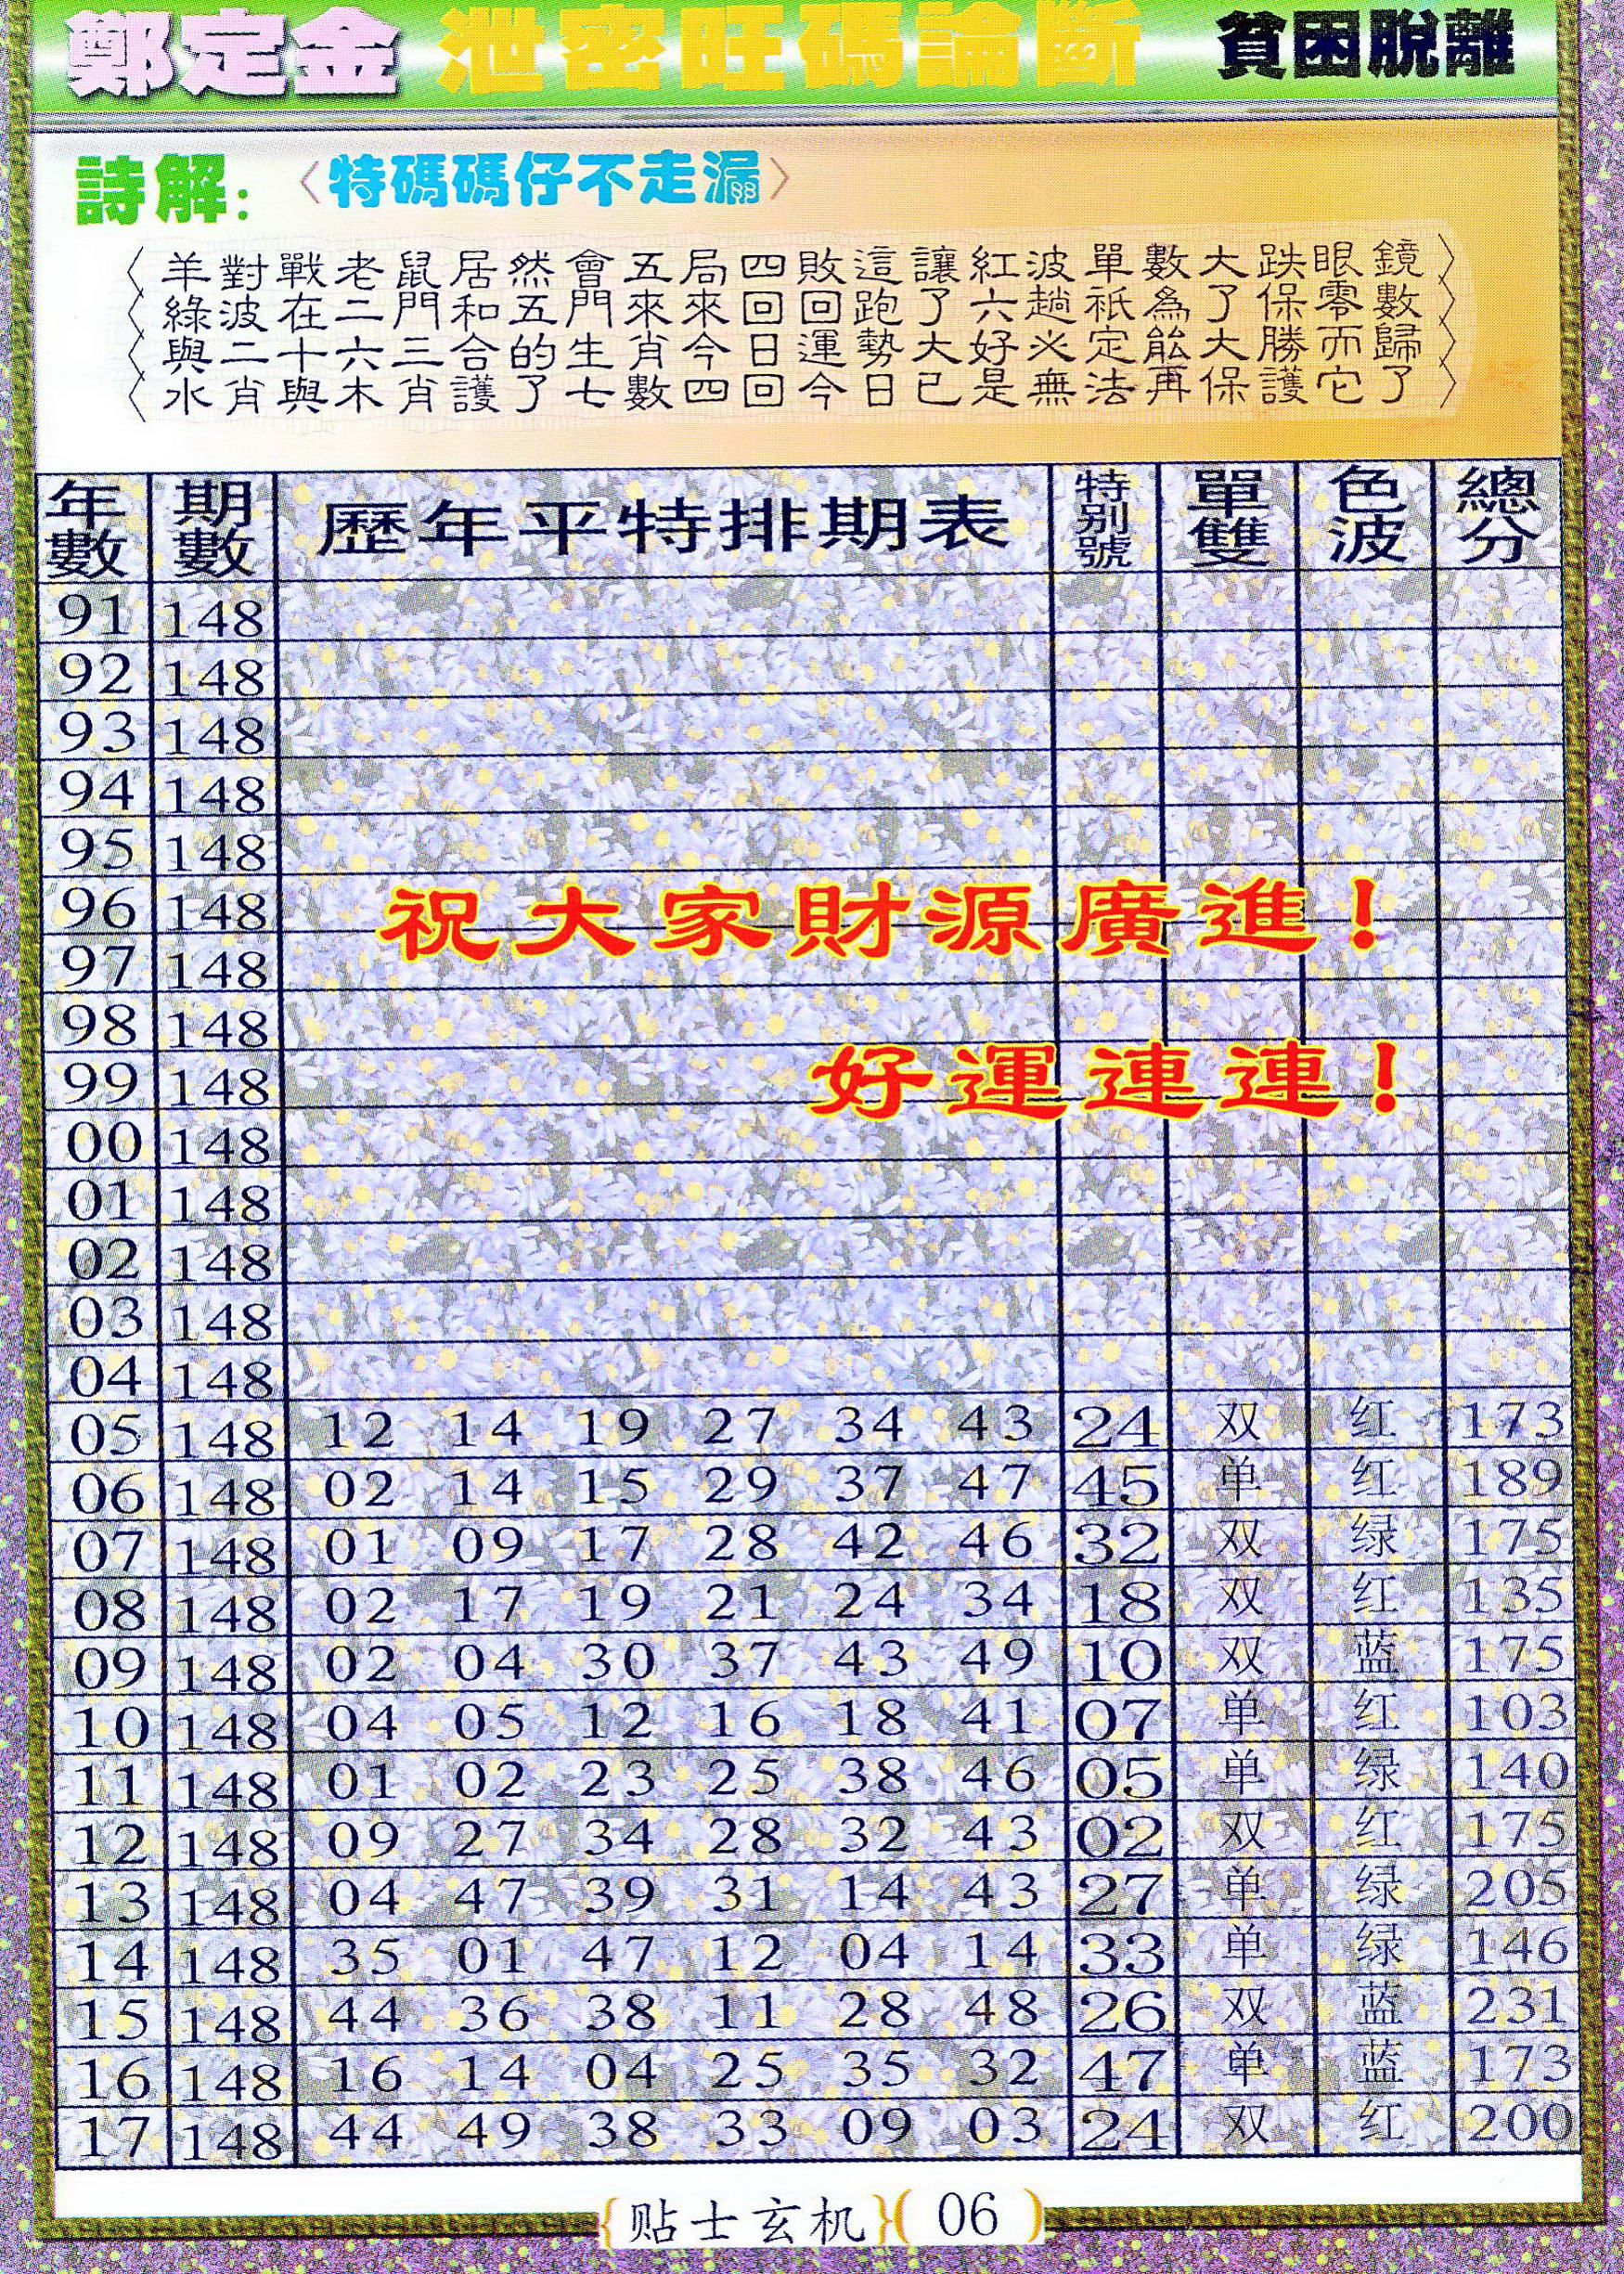 鄭定金 泄密旺碼論斷 貧困脫離
詩解: 〈特碼碼仔不走漏〉
〈羊對戰老鼠居然會五局四敗這讓紅波單數大跌眼鏡〉
〈綠波在二門和五門來來回回跑了六趟祇為了保零數〉
〈與二十六三合的生肖今日運勢大好必定能大勝而歸〉
〈水肖與木肖護了七數四回今日已是無法再保護它了〉
年數 期數 歷年平特排期表 特別號 單雙 色波 總分
91 148
92 148
93 148
94 148
95 148
96 148
祝大家財源廣進!
97 148
98 148
99 148
好運連連!
00 148
01 148
02 148
03 148
04 148
05 148 12 14 19 27 34 43 24 双 红 173
06 148 02 14 15 29 37 47 45 单 红 189
07 148 01 09 17 28 42 46 32 双 绿 175
08 148 02 17 19 21 24 34 18 双 红 135
09 148 02 04 30 37 43 49 10 双 蓝 175
10 148 04 05 12 16 18 41 07 单 红 103
11 148 01 02 23 25 38 46 05 单 绿 140
12 148 09 27 34 28 32 43 02 双 红 175
13 148 04 47 39 31 14 43 27 单 绿 205
14 148 35 01 47 12 04 14 33 单 绿 146
15 148 44 36 38 11 28 48 26 双 蓝 231
16 148 16 14 04 25 35 32 47 单 蓝 173
17 148 44 49 38 33 09 03 24 双 红 200
{贴士玄机}(06)